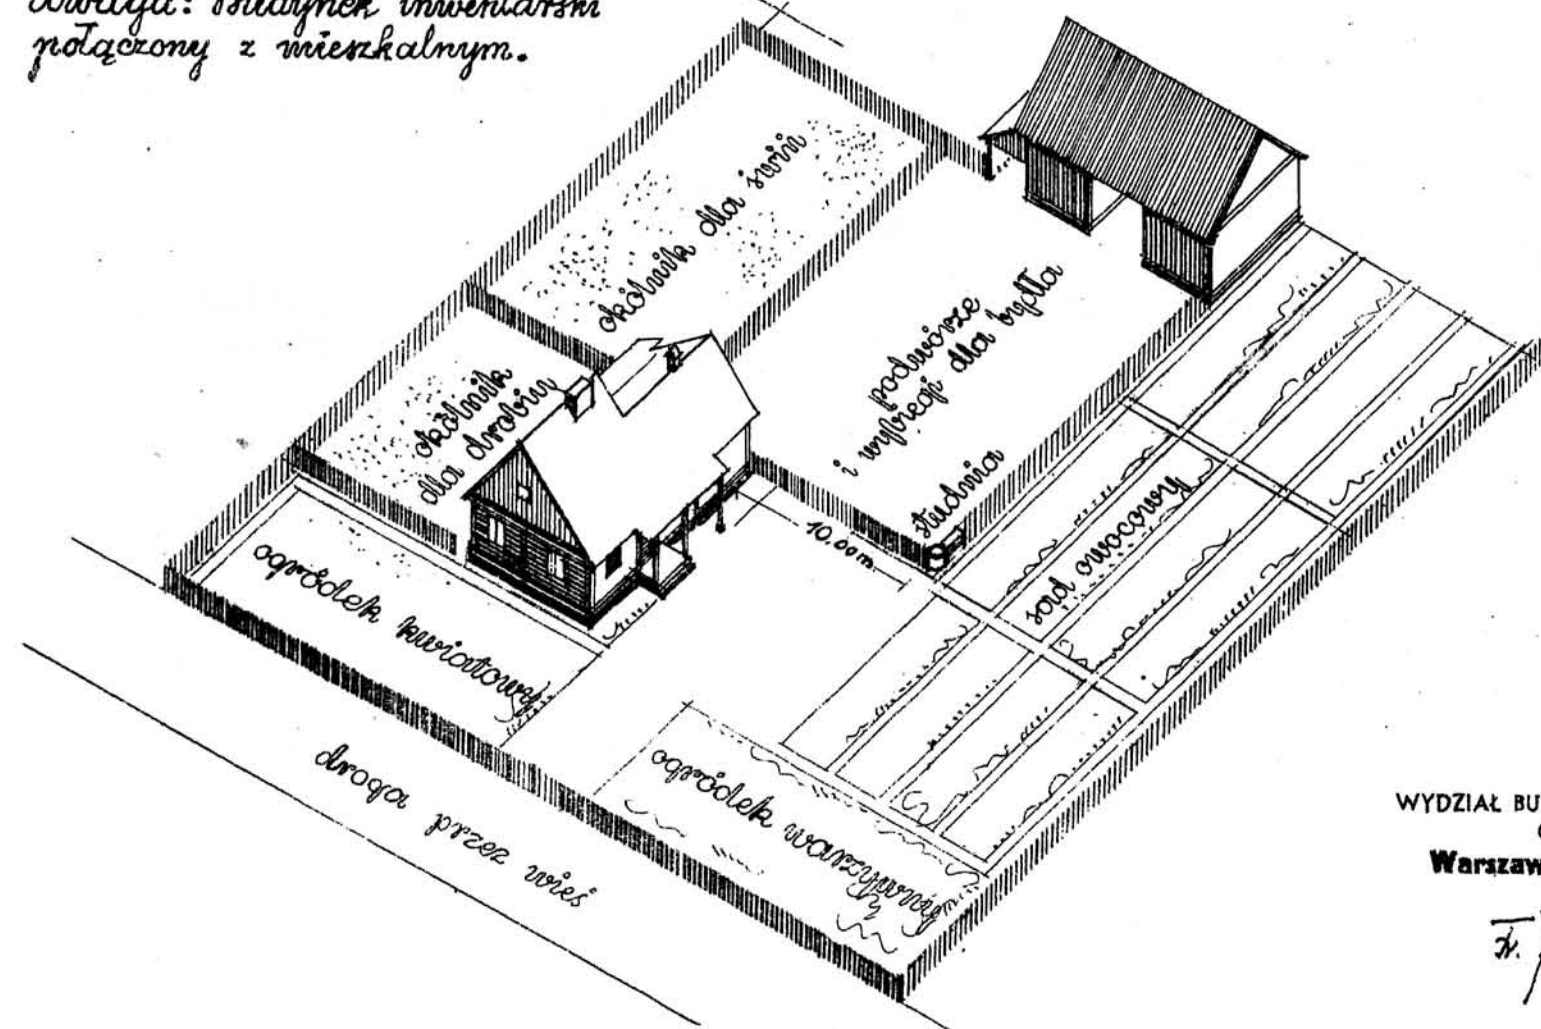 Uwaga: Budynek inwentarski
połączony z mieszkalnym.
okólnik dla świń
okólnik
dla drobiu
podwórze
i wybieg dla bydła
studnia
10.00 m.
sad owocowy
ogródek kwiatowy
ogródek warzywny
droga przez wieś
WYDZIAŁ BU
Warszaw